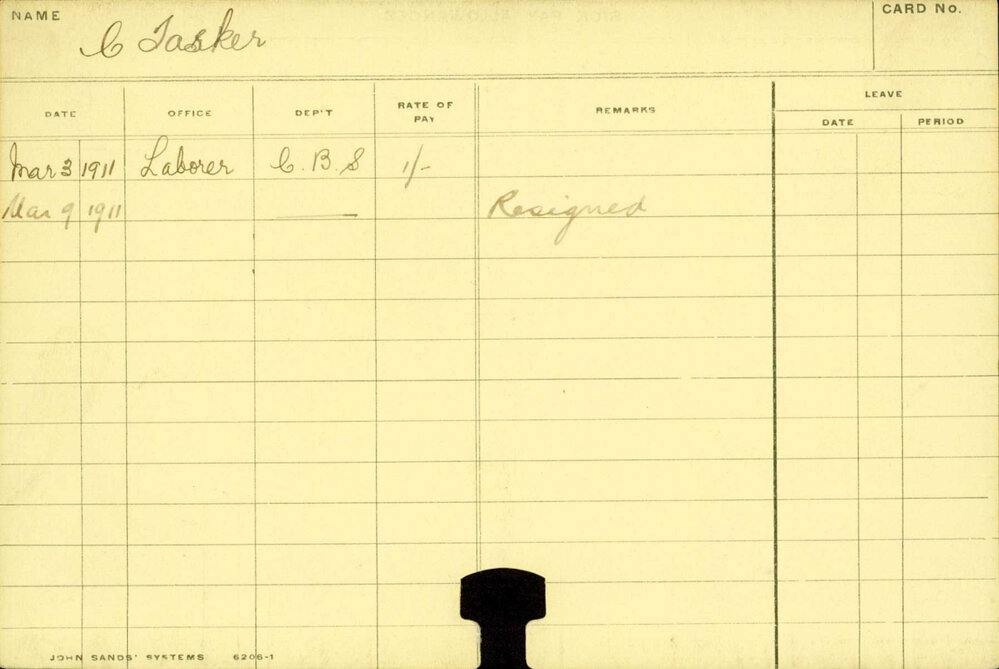 NAME
C Tasker
CARD No.
DATE OFFICE DEP'T RATE OF PAY REMARKS LEAVE
DATE PERIOD
Mar 3 1911 Laborer C.B.S 1/-
Mar 9 1911 Resigned
JOHN SANDS' SYSTEMS 6206-1